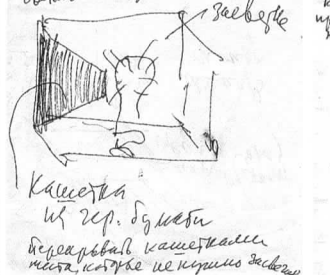 засветка
Кашетка
из чер. бумаги
перекрывать кашетками
места, которые не нужно засвечи